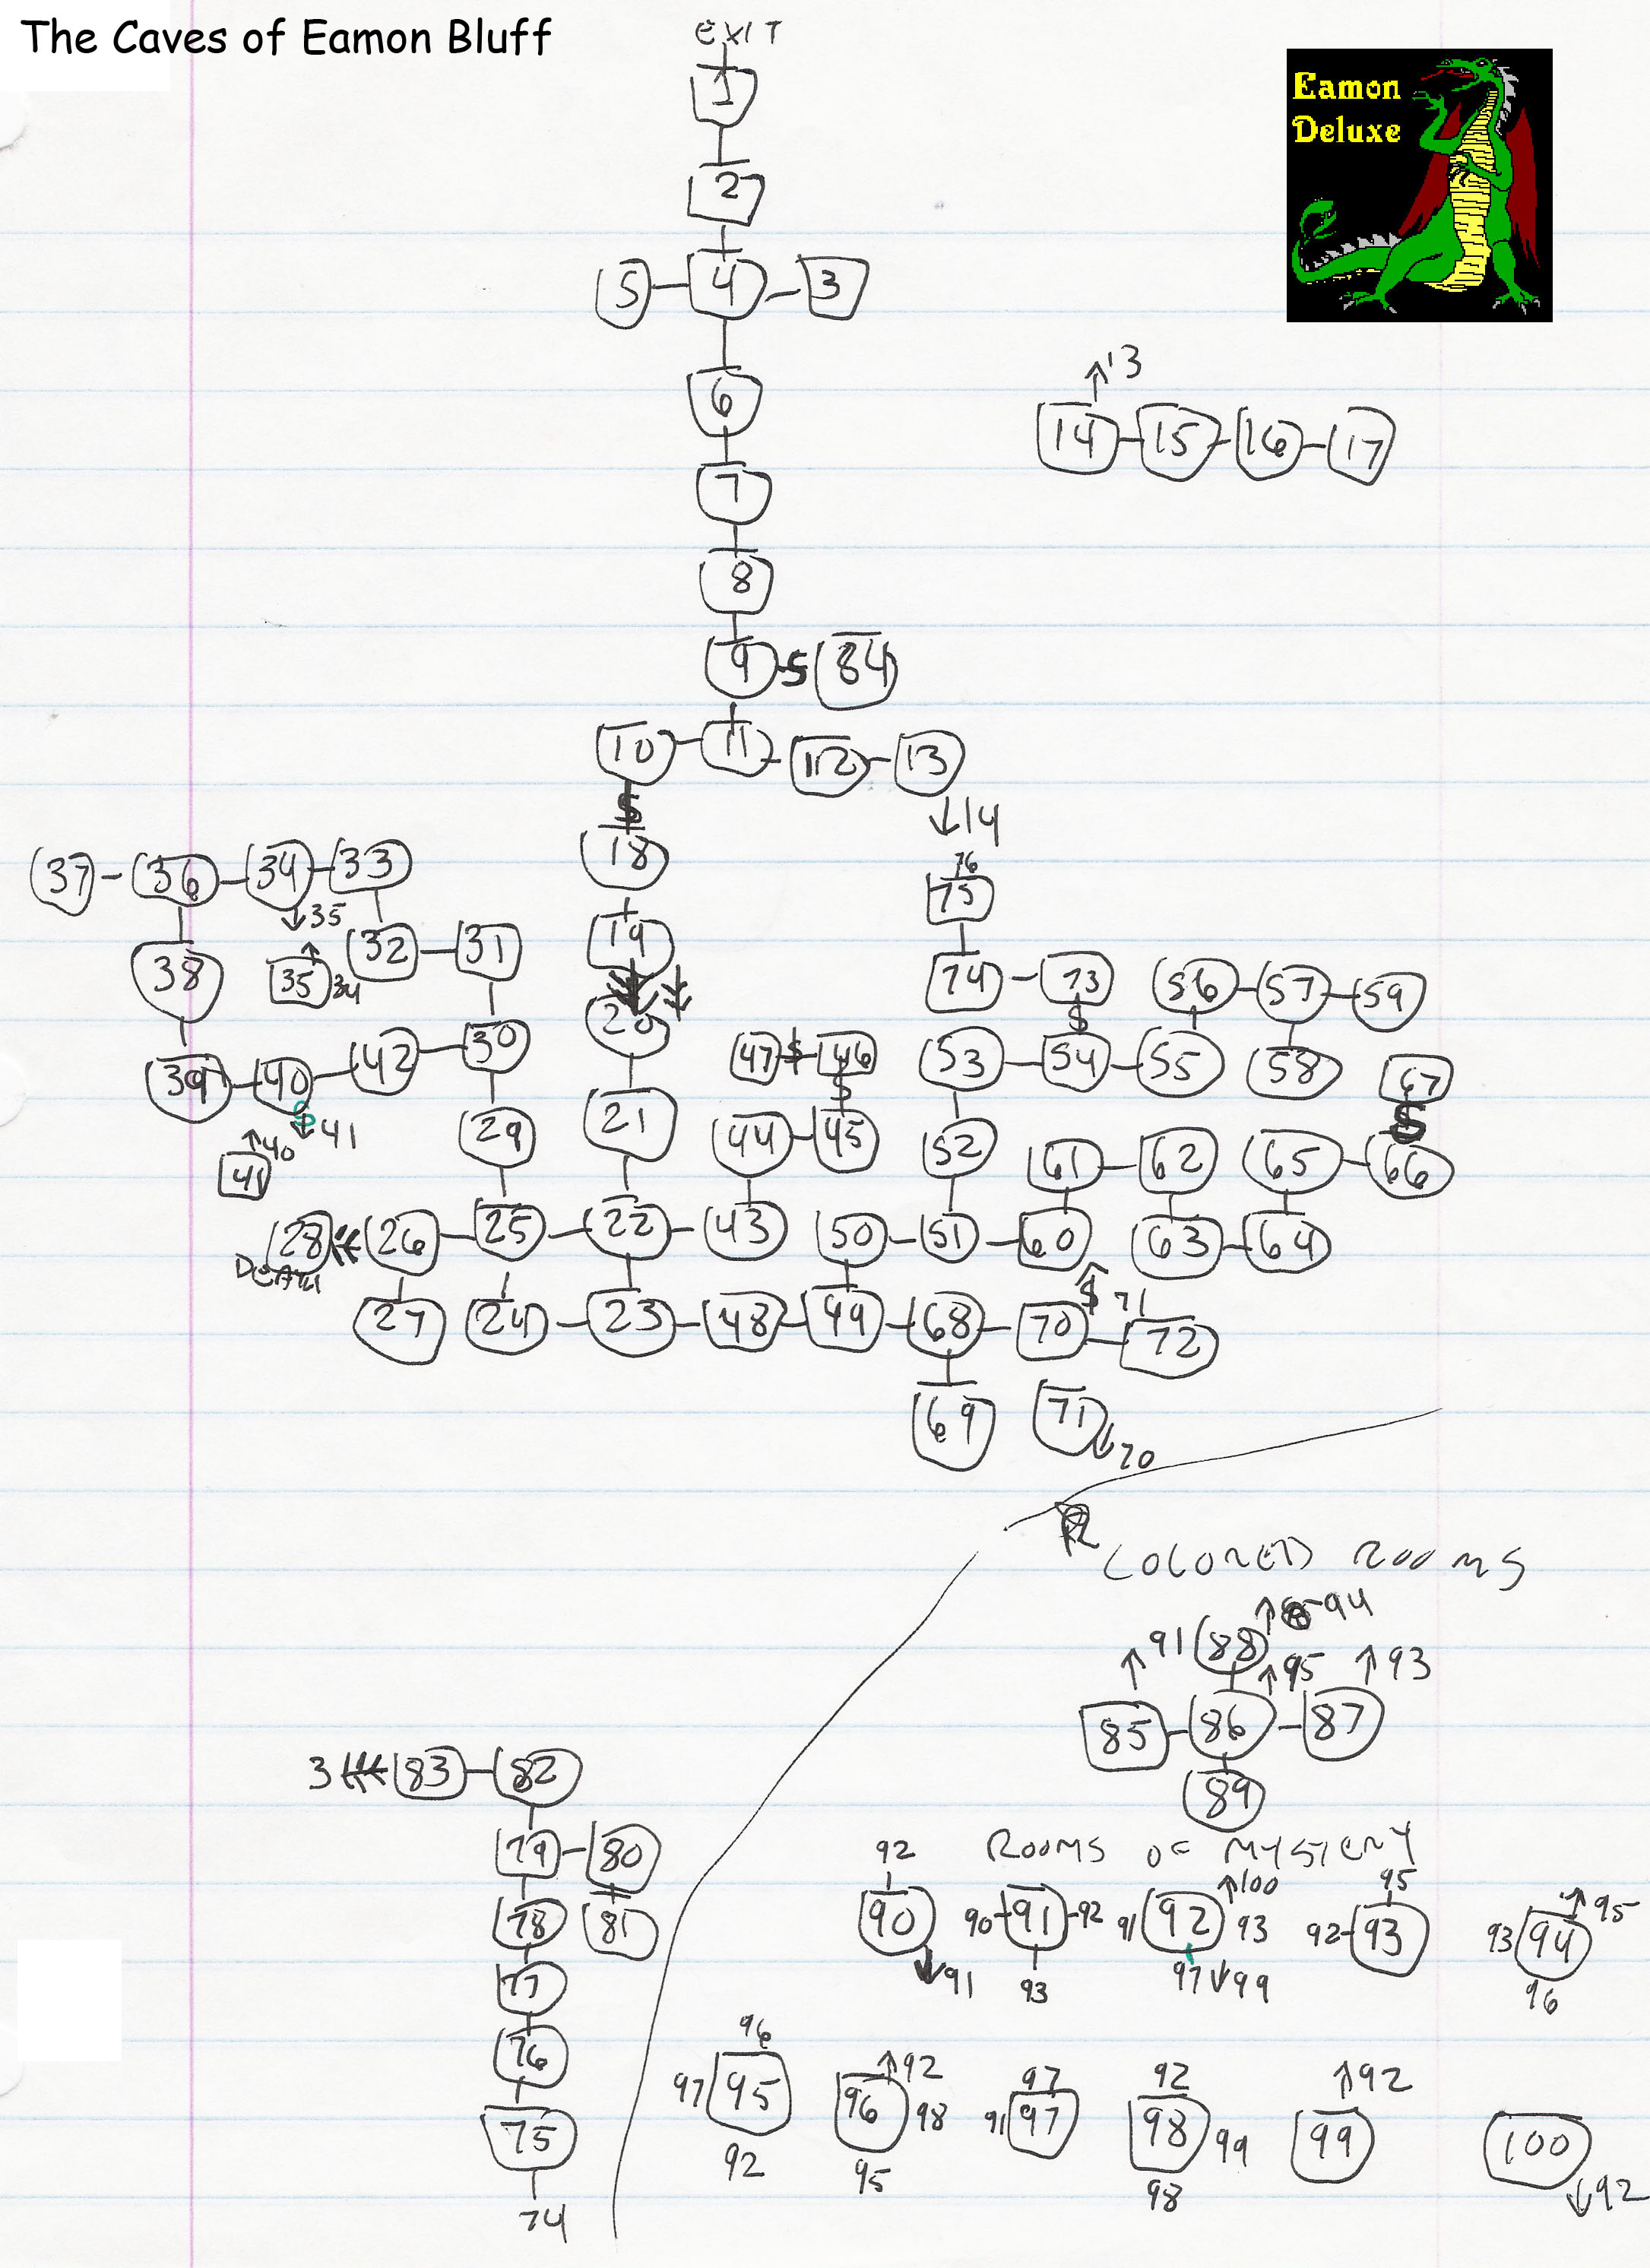 The Caves of Eamon Bluff
EXIT
Eamon
Deluxe
1
2
5 4 3
↑13
6
14 15 16 17
7
8
9 S 84
10 11 12 13
S
↓14
18
76
37 36 34 33
75
↓35
19
38 ↑ 32 31
35 34
74 73 56 57 59
20
S
39 40 42 30
47 S 46 53 54 55 58 67
S
S
S
↓41
↑40
41
29 21 44 45 52
61 62 65 66
28 26 25 22 43 50 51 60 63 64
DEATH
↑
S 71
27 24 23 48 49 68 70 72
69 71
↓70
COLORED ROOMS
↑94
↑91 88
↑95 ↑93
85 86 87
89
3 83 82
ROOMS OF MYSTERY
79 80
78 81
77
76
75
74
92
↑100
95
↑95
90
90 91 92
91 92 93
92 93
93 94
↓91
93
97 ↓99
96
96
↑92
97
92
↑92
97 95
96 98
91 97
98 99
99
100
92
95
98
↓92